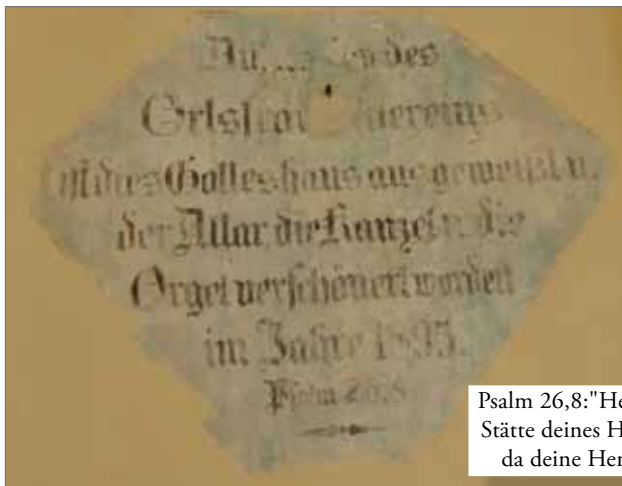 des
ist dies Gotteshaus ausgeweißt u.
der Altar die Kanzel u. die
Orgel verschönert worden
im Jahre 1895.
Psalm 26,8
Psalm 26,8:"He
Stätte deines H
da deine Her